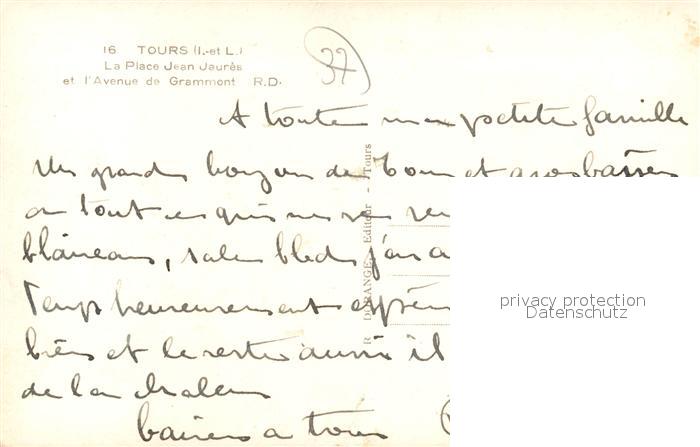 16 TOURS (I.-et L.)
La Place Jean Jaurès
et l'Avenue de Grammont R.D.
37
A toute ma petite famille
Un grand bonjour de Tours et gros baisers
tout ce qui
blaireau, sale bled j'en a
Temps heureusement
et le reste aussi il
de la chaleur
baisers a tous
R DORANGE, Editeur - Tours
privacy protection
Datenschutz